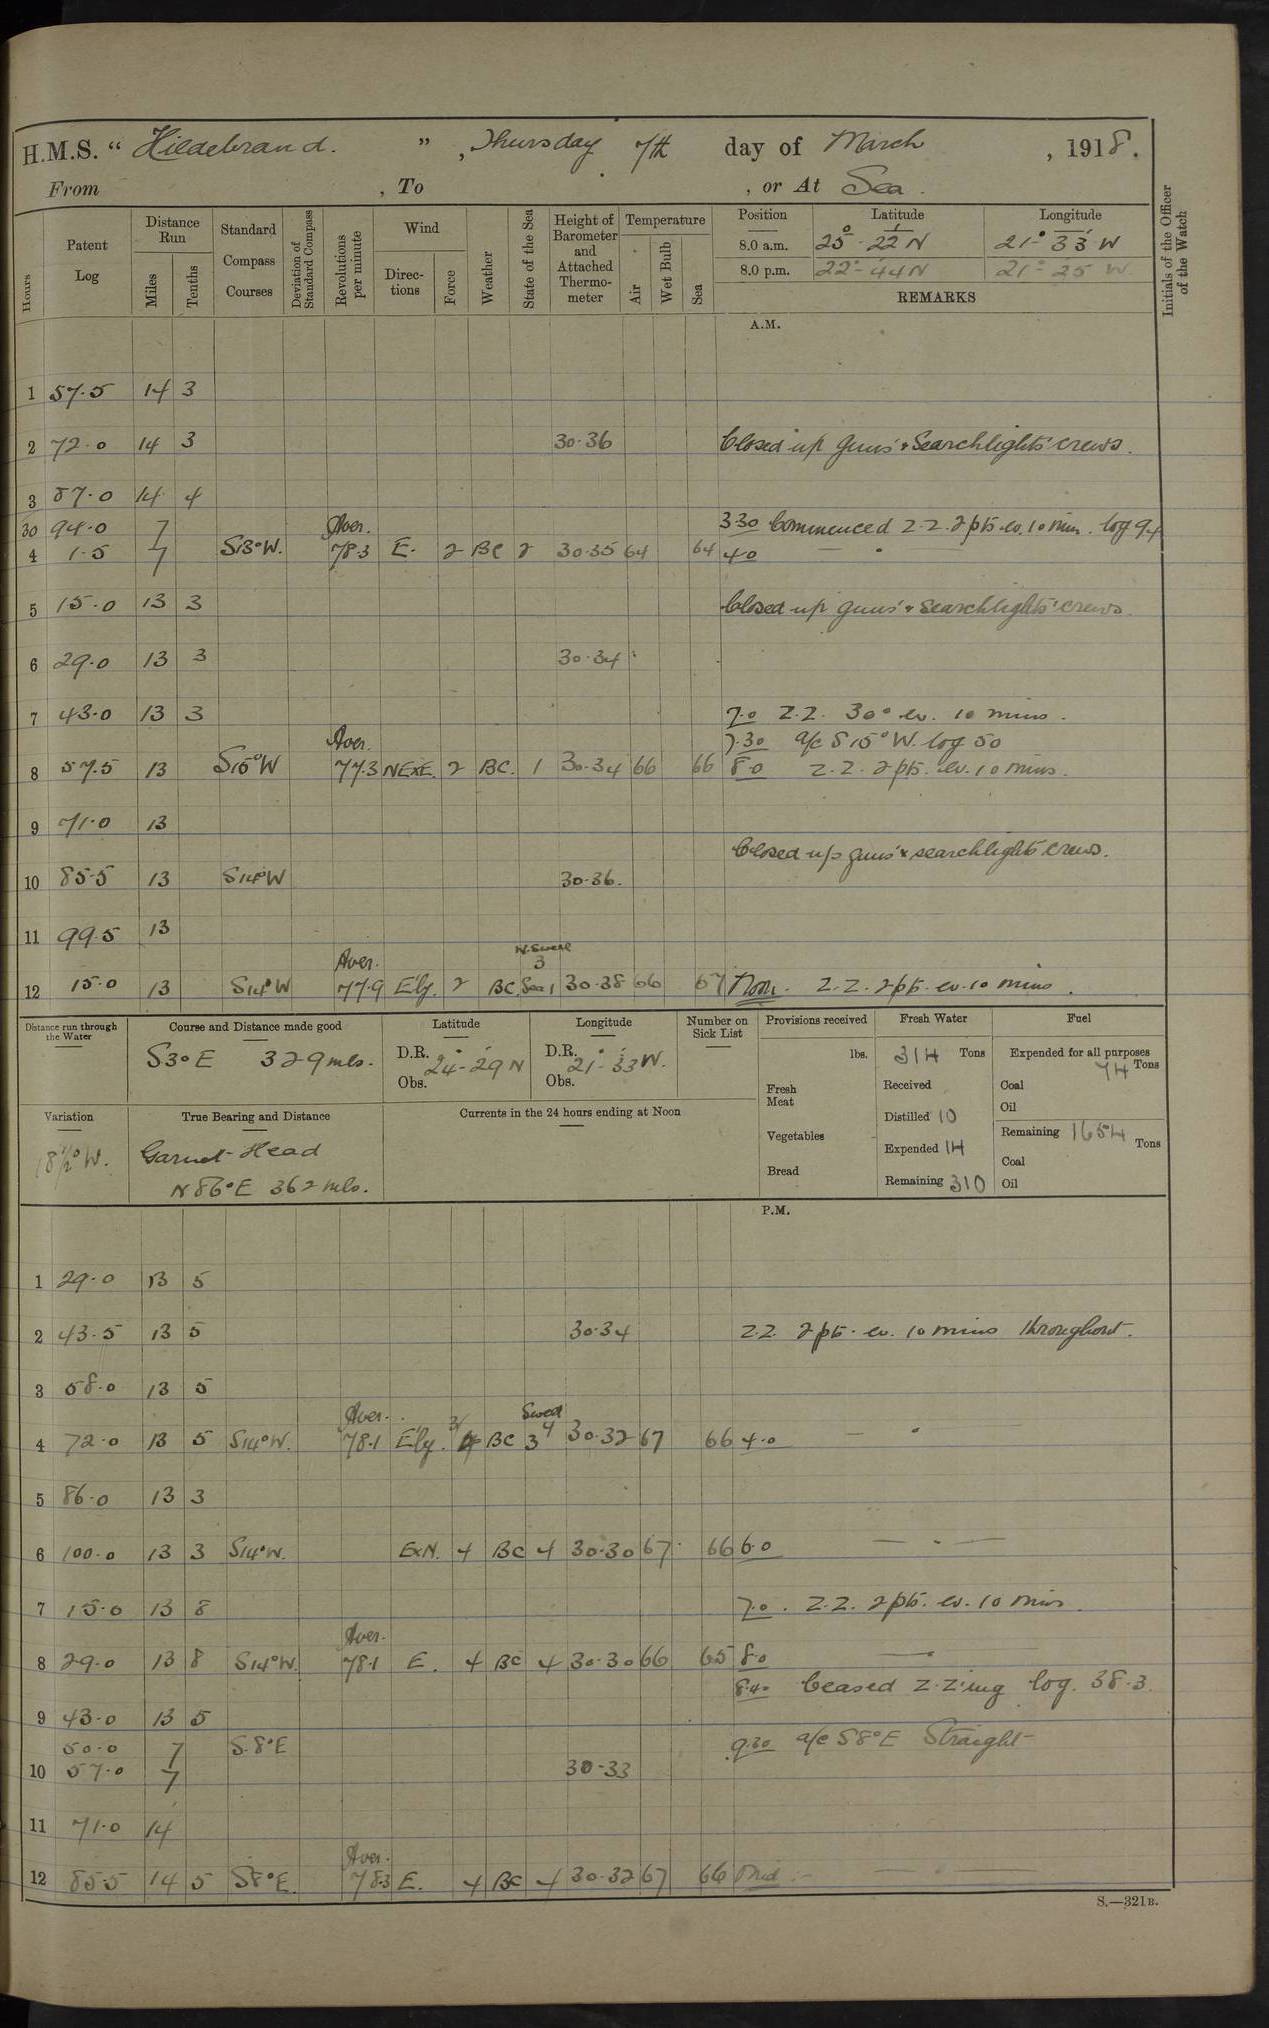 H.M.S. " Hildebrand. ", Thursday 7th day of March, 1918.
From , To , or At Sea.
Hours Patent Log Distance Run Miles Tenths Standard Compass Courses Deviation of Standard Compass Revolutions per minute Wind Directions Force Weather State of the Sea Height of Barometer and Attached Thermometer Temperature Air Wet Bulb Sea Position Latitude Longitude Initials of the Officer of the Watch
8.0 a.m. 25° 22' N 21° 33' W
8.0 p.m. 22° 44 N 21° 25 W
REMARKS
A.M.
1 57.5 14 3
2 72.0 14 3 30.36 Closed up guns' & Searchlights' crews.
3 87.0 14 4
30 94.0 7 Aver. 3.30 Commenced Z.Z. 2pts. ev. 10 min. log 94
4 1.5 7 S13°W. 78.3 E. 2 BC 2 30.35 64 64 4.0 — " —
5 15.0 13 3 Closed up guns' & searchlights' crews.
6 29.0 13 3 30.34
7 43.0 13 3 7.0 Z.Z. 30° ev. 10 mins.
Aver. 7.30 a/c S15°W. log 50
8 57.5 13 S15°W 77.3 NExE. 2 BC. 1 30.34 66 66 8.0 Z.Z. 2pts. ev. 10 mins.
9 71.0 13
Closed up guns' & searchlights crews.
10 85.5 13 S14°W 30.36.
11 99.5 13
Aver. N.Swell 3
12 15.0 13 S14°W 77.9 E'ly. 2 BC Sea 1 30.38 66 67 Noon. Z.Z. 2pts. ev. 10 mins.
Distance run through the Water Course and Distance made good Latitude Longitude Number on Sick List Provisions received Fresh Water Fuel
S3°E 329 mls. D.R. 24° 29' N D.R. 21° 33' W. lbs. 314 Tons Expended for all purposes 74 Tons
Obs. Obs. Fresh Meat Received Coal
Variation True Bearing and Distance Currents in the 24 hours ending at Noon Distilled 10 Oil
18½° W. Garnet Head Vegetables Expended 14 Remaining 1654 Tons
N86°E 362 mls. Bread Remaining 310 Coal
Oil
P.M.
1 29.0 13 5
2 43.5 13 5 30.34 Z.Z. 2pts. ev. 10 mins throughout.
3 58.0 13 5
Aver. Swell
4 72.0 13 5 S14°W. 78.1 E'ly. 3/4 BC 3 4 30.32 67 66 4.0 — " —
5 86.0 13 3
6 100.0 13 3 S14°W. ExN. 4 BC 4 30.30 67 66 6.0 — " —
7 15.0 13 8 7.0. Z.Z. 2pts. ev. 10 mins.
Aver.
8 29.0 13 8 S14°W. 78.1 E. 4 BC 4 30.30 66 65 8.0 — " —
8.40 Ceased Z.Z'ing log. 38.3.
9 43.0 13 5
50.0 7 S.8°E 9.30 a/c S8°E Straight
10 57.0 7 30.33
11 71.0 14
Aver.
12 85.5 14 5 S8°E. 78.3 E. 4 BC 4 30.32 67 66 Mid. — " —
S.—321B.